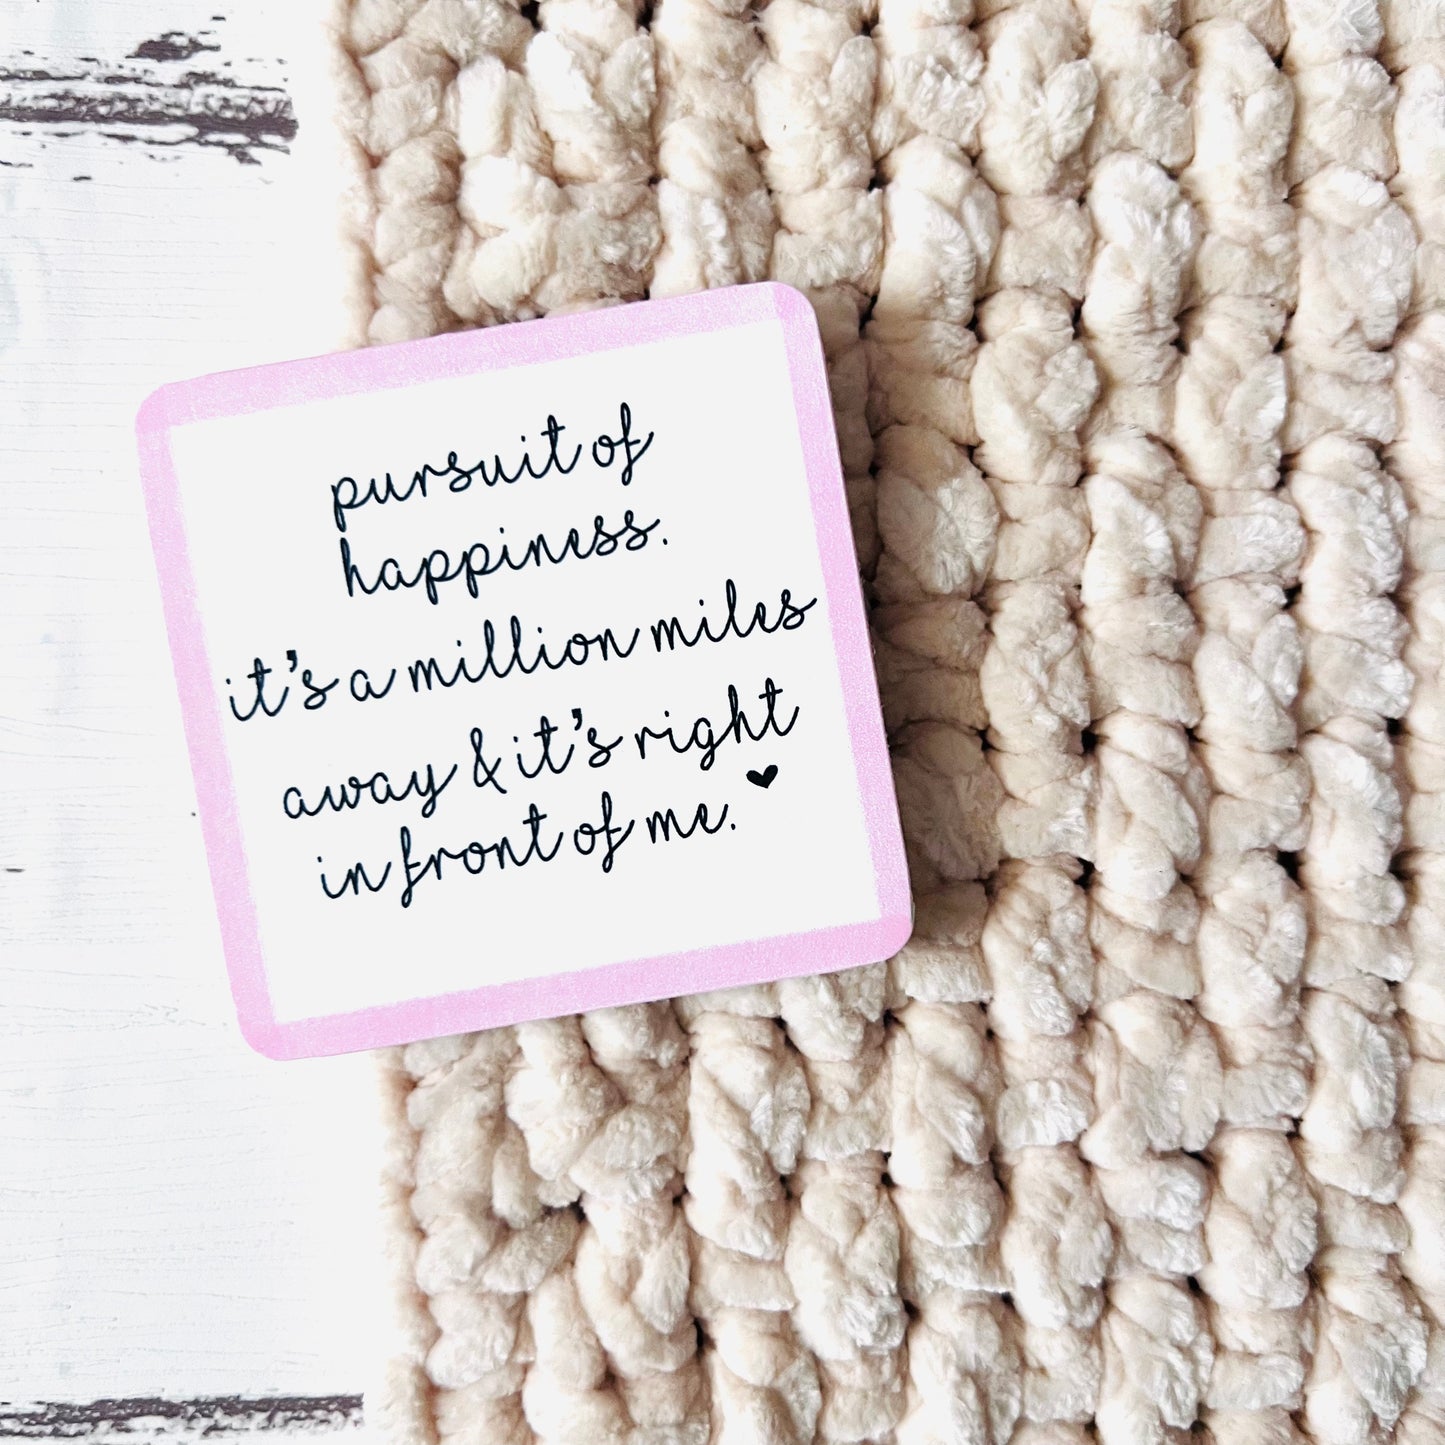 pursuit of
happiness.
it's a million miles
away & it's right
in front of me.